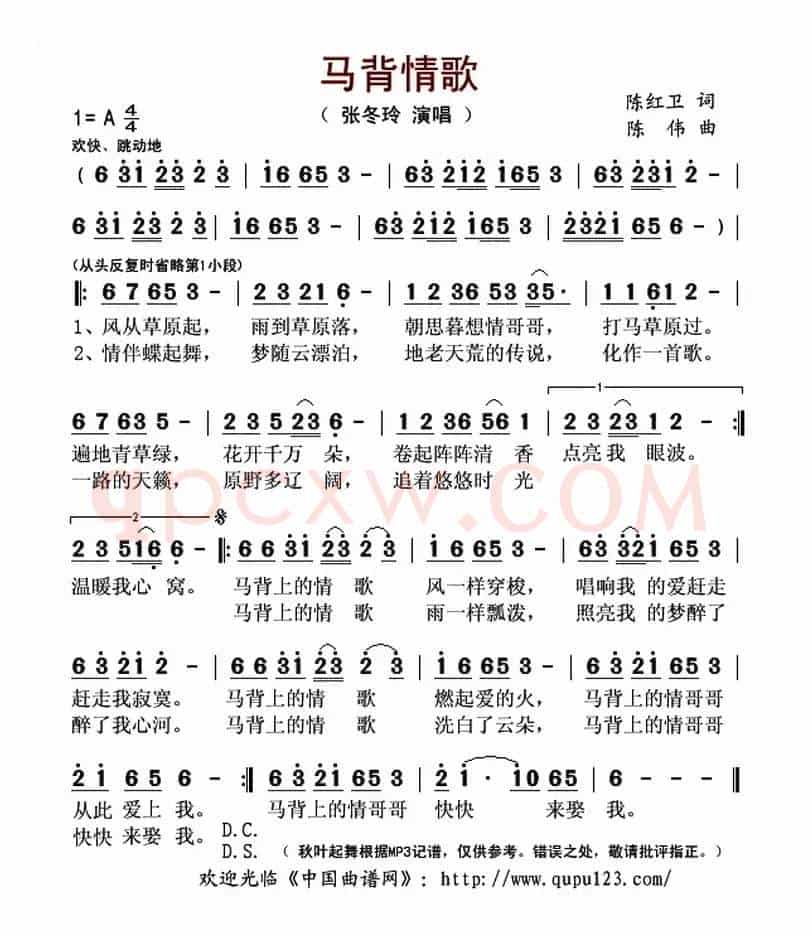 马背情歌
1= A 4/4
（ 张冬玲 演唱 ）
陈红卫 词
陈 伟 曲
欢快、跳动地
( 6 3̇1̇ 2̇3̇ 2̇ 3̇ | 1̇6 65 3 - | 63̇ 2̇1̇2̇ 1̇65 3 | 63̇ 2̇3̇1̇ 2̇ - |
6 3̇1̇ 2̇3̇ 2̇3̇ | 1̇6 65 3 - | 63̇ 2̇1̇2̇ 1̇65 3 | 2̇3̇2̇1̇ 65 6 - ) |
(从头反复时省略第1小段)
‖: 6 7 65 3 - | 2 3 21 6̣ - | 1 2 36 53 35· | 1 1 6̣1 2 - |
1、风从草原起， 雨到草原落， 朝思暮想情哥哥， 打马草原过。
2、情伴蝶起舞， 梦随云漂泊， 地老天荒的传说， 化作一首歌。
1
6 7 63 5 - | 2 3 5 23 6̣ - | 1 2 36 56 1 | 2 3 23 1 2 - :‖
遍地青草绿， 花开千万 朵， 卷起阵阵清 香 点亮我 眼波。
一路的天籁， 原野多辽 阔， 追着悠悠时 光
qpcxw.COM
2
2 3 516̣ 6̣ - ‖: 6 6 3̇1̇ 2̇3̇ 2̇ 3̇ | 1̇6 65 3 - | 63̇ 3̇2̇1̇ 65 3 |
温暖我心 窝。 马背上的情 歌 风一样穿梭， 唱响我 的爱赶走
马背上的情 歌 雨一样瓢泼， 照亮我 的梦醉了
63̇ 2̇1̇ 2̇ - | 6 6 3̇1̇ 2̇3̇ 2̇ 3̇ | 1̇6 65 3 - | 63̇ 2̇1̇ 65 3 |
赶走我寂寞。 马背上的情 歌 燃起爱的火， 马背上的情哥哥
醉了我心河。 马背上的情 歌 洗白了云朵， 马背上的情哥哥
2̇ 1̇ 65 6 - :‖ 63̇ 2̇1̇ 65 3 | 2̇ 1̇ · 1̇0 65 | 6 - - - ‖
从此 爱上 我。 马背上的情哥哥 快快 来娶 我。
快快 来娶 我。 D.C.
D.S. （ 秋叶起舞根据MP3记谱，仅供参考。错误之处，敬请批评指正。）
欢迎光临《中国曲谱网》：http://www.qupu123.com/